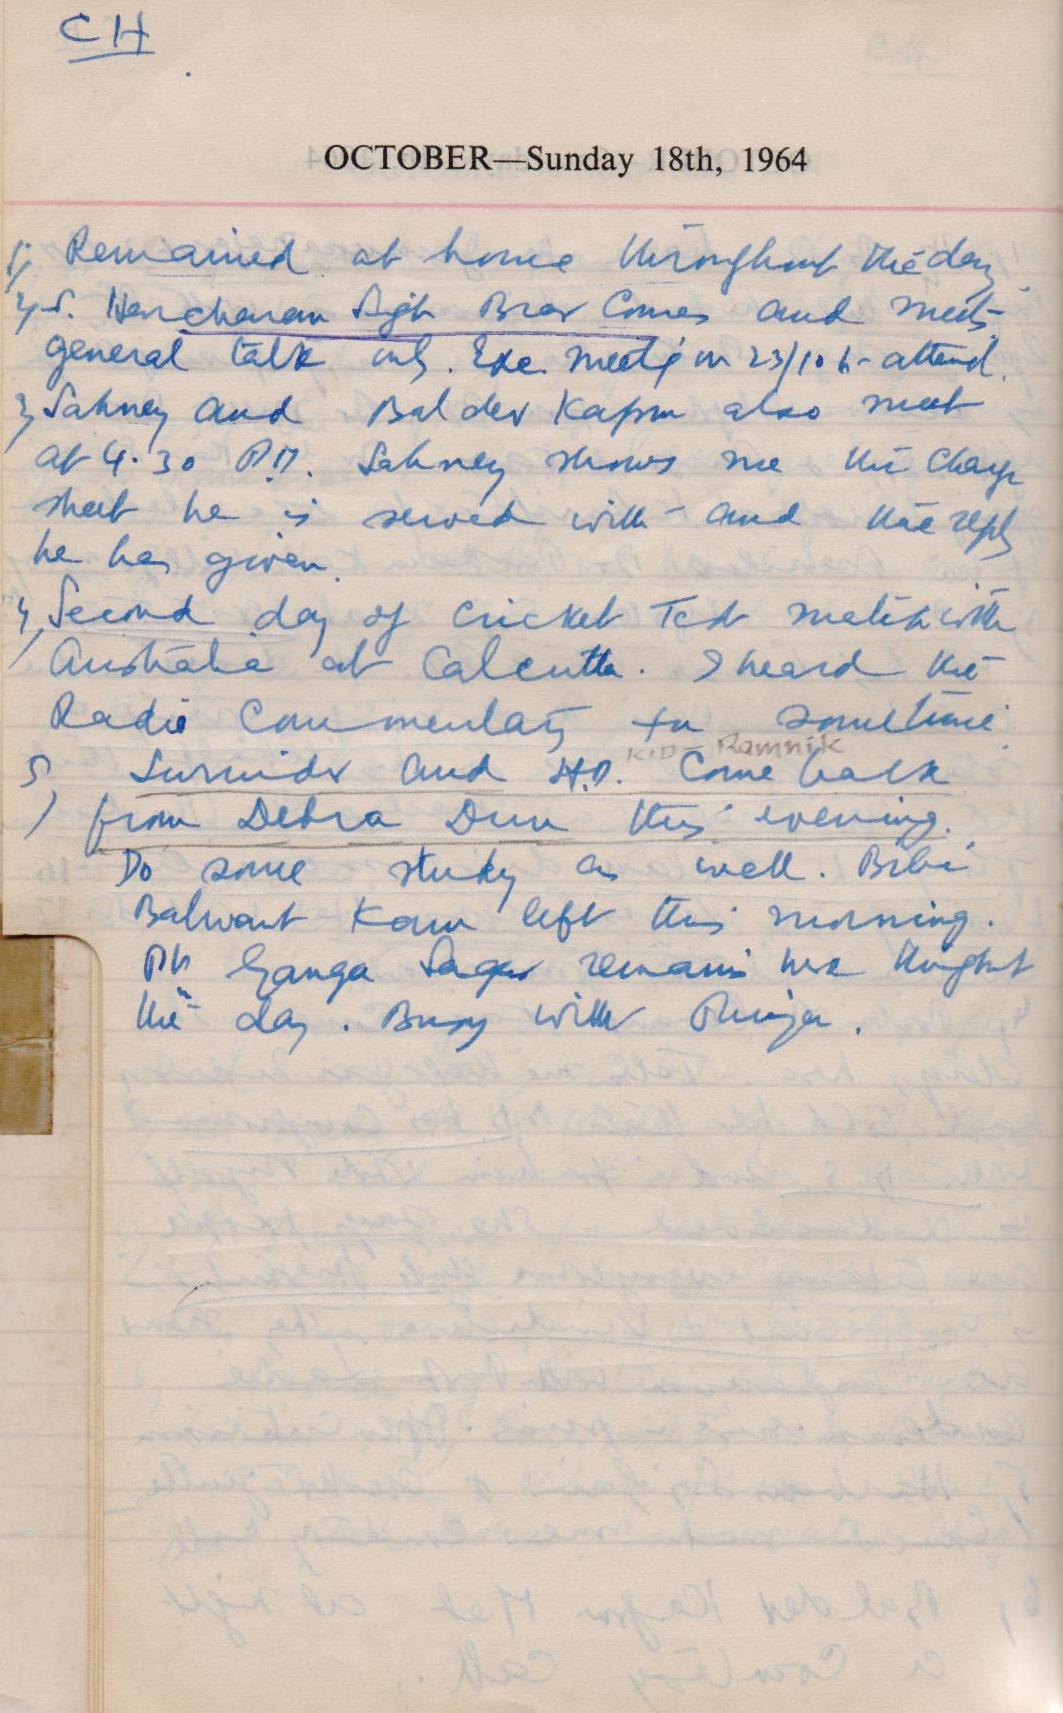 CH
OCTOBER—Sunday 18th, 1964
1) Remained at home throughout the day
2) S. Harcharan Singh Brar Comes and meets
general talk only. Exe. meeting on 23/10 to attend.
3) Sahney and Baldev Kapur also meet
at 4.30 P.M. Sahney shows me the charge
sheet he is served with and the reply
he has given.
4) Second day of Cricket Test match with
Australia at Calcutta. I heard the
Radio Commentary for sometime
K.D. - Ramnik
5) Surinder and H.D. Come back
from Dehra Dun this evening.
Do some study as well. Bibi
Balwant Kaur left this morning.
Pt Ganga Sagar remains here throughout
the day. Busy with